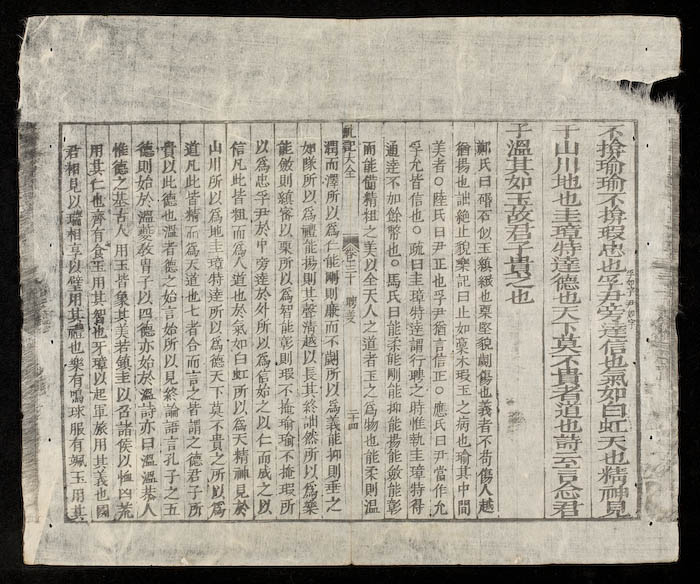 不揜瑜瑜不揜瑕忠也孚尹旁達信也氣如白虹天也精神見
于山川地也圭璋特達德也天下莫不貴者道也詩云言念君
子溫其如玉故君子貴之也
鄭氏曰碈石似玉縝緻也栗堅貌劌傷也義者不苟傷人越
猶揚也詘絶止貌樂記曰止如槀木瑕玉之病也瑜其中間
美者○陸氏曰尹正也孚尹猶言信正○應氏曰尹當作允
孚允者信也○疏曰圭璋特達謂行聘之時惟執圭璋特得
通達不如餘幣也○馬氏曰能柔能剛能抑能揚能斂能彰
而能備精粗之美以全天人之道者玉之爲物也能柔則溫
礼記大全 卷三十 聘義 二十四
潤而澤所以爲仁能剛則廉而不劌所以爲義能抑則垂之
如隊所以爲禮能揚則其聲清越以長其終詘然所以爲樂
能斂則縝密以栗所以爲智能彰則瑕不掩瑜瑜不掩瑕所
以爲忠孚尹於中旁達於外所以爲信始之以仁而成之以
信凡此皆粗而爲人道也於氣如白虹所以爲天精神見於
山川所以爲地圭璋特達所以爲德天下莫不貴之所以爲
道凡此皆精而爲天道也七者合而言之皆謂之德君子所
貴以此德也溫者德之始言始所以見終論語言孔子之五
德則始於溫夔教胄子以四德亦始於溫詩亦曰溫溫恭人
惟德之基古人用玉皆象其美若鎮圭以召諸侯以恤凶荒
用其仁也齊有食玉用其智也牙璋以起軍旅用其義也國
君相見以瑞相享以璧用其禮也樂有鳴球服有佩玉用其